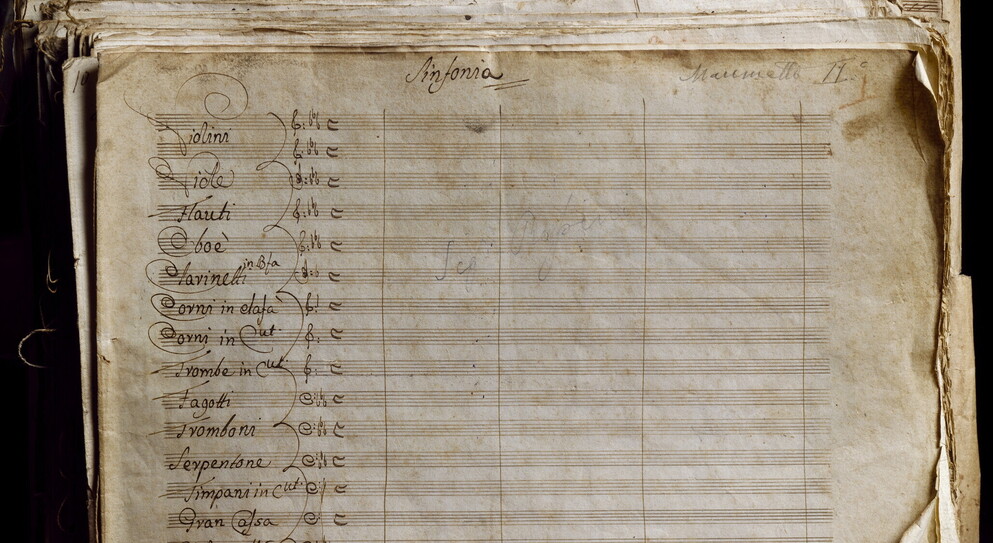 Sinfonia
Maometto II.º
Violini
Viole
Flauti
Oboè
Clarinetti in Bfa
Corni in elafà
Corni in Cut
Trombe in Cut
Fagotti
Tromboni
Serpentone
Timpani in Cut
Gran Cassa